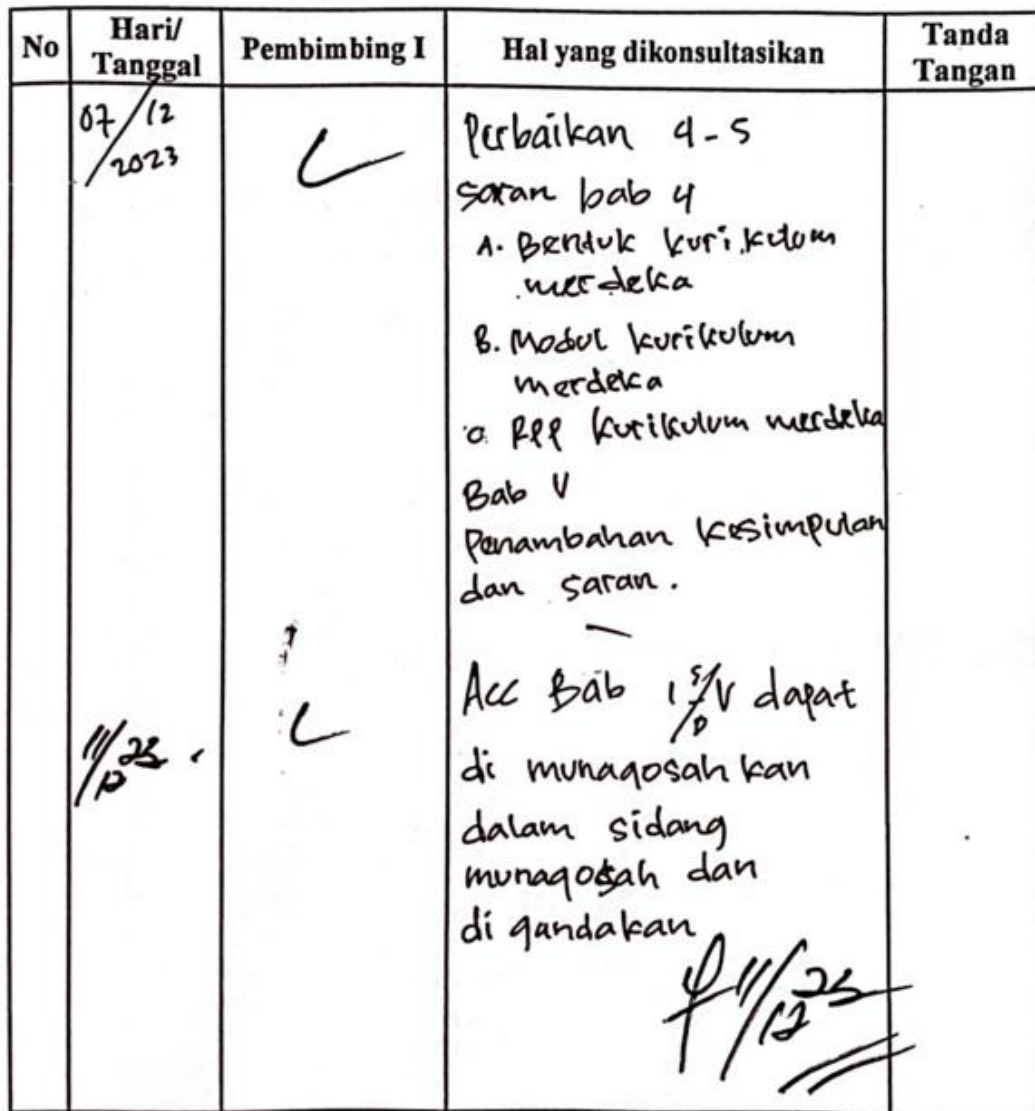 No Hari/ Tanggal Pembimbing I Hal yang dikonsultasikan Tanda Tangan
07/12/2023
Perbaikan 4-5
saran bab 4
A. Bentuk kurikulum
merdeka
B. Modul kurikulum
merdeka
RPP kurikulum merdeka
Bab V
Penambahan kesimpulan
dan saran.
11/12 23
Acc Bab I S/D V dapat
di munaqosah kan
dalam sidang
munaqosah dan
di gandakan
11/12 23